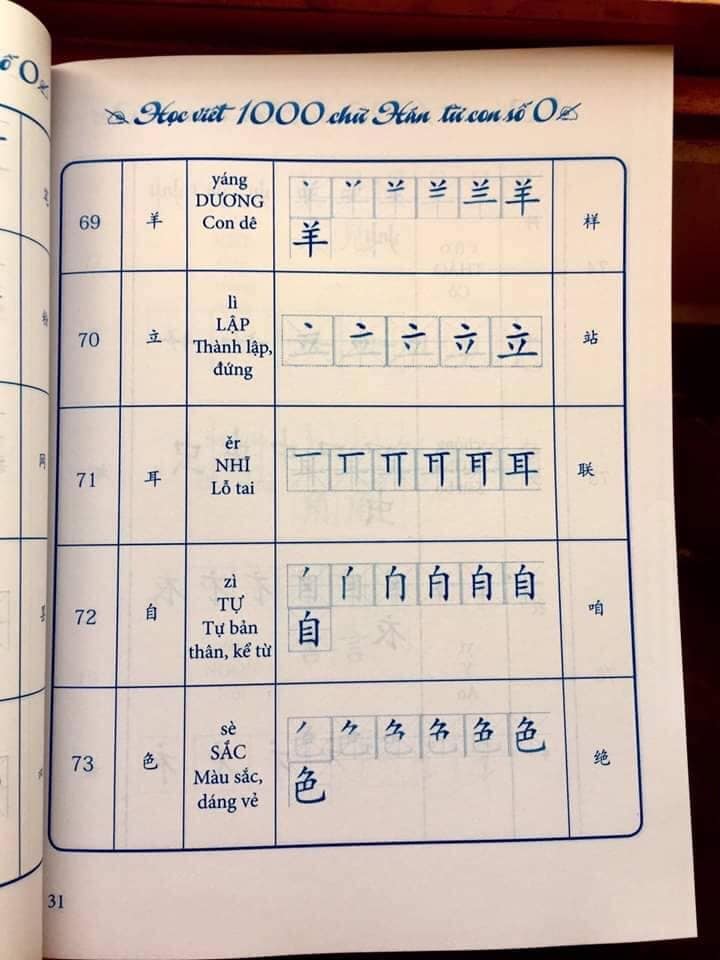 Học viết 1000 chữ Hán từ con số 0
69
羊
yáng
DƯƠNG
Con dê
丶 丷 䒑 兰 羊
羊
样
70
立
lì
LẬP
Thành lập,
đứng
丶 亠 立
站
71
耳
ěr
NHĨ
Lỗ tai
一 丅 耳
联
72
自
zì
TỰ
Tự bản
thân, kể từ
丿 自
自
咱
73
色
sè
SẮC
Màu sắc,
dáng vẻ
丿 ⺈ 色
色
绝
31